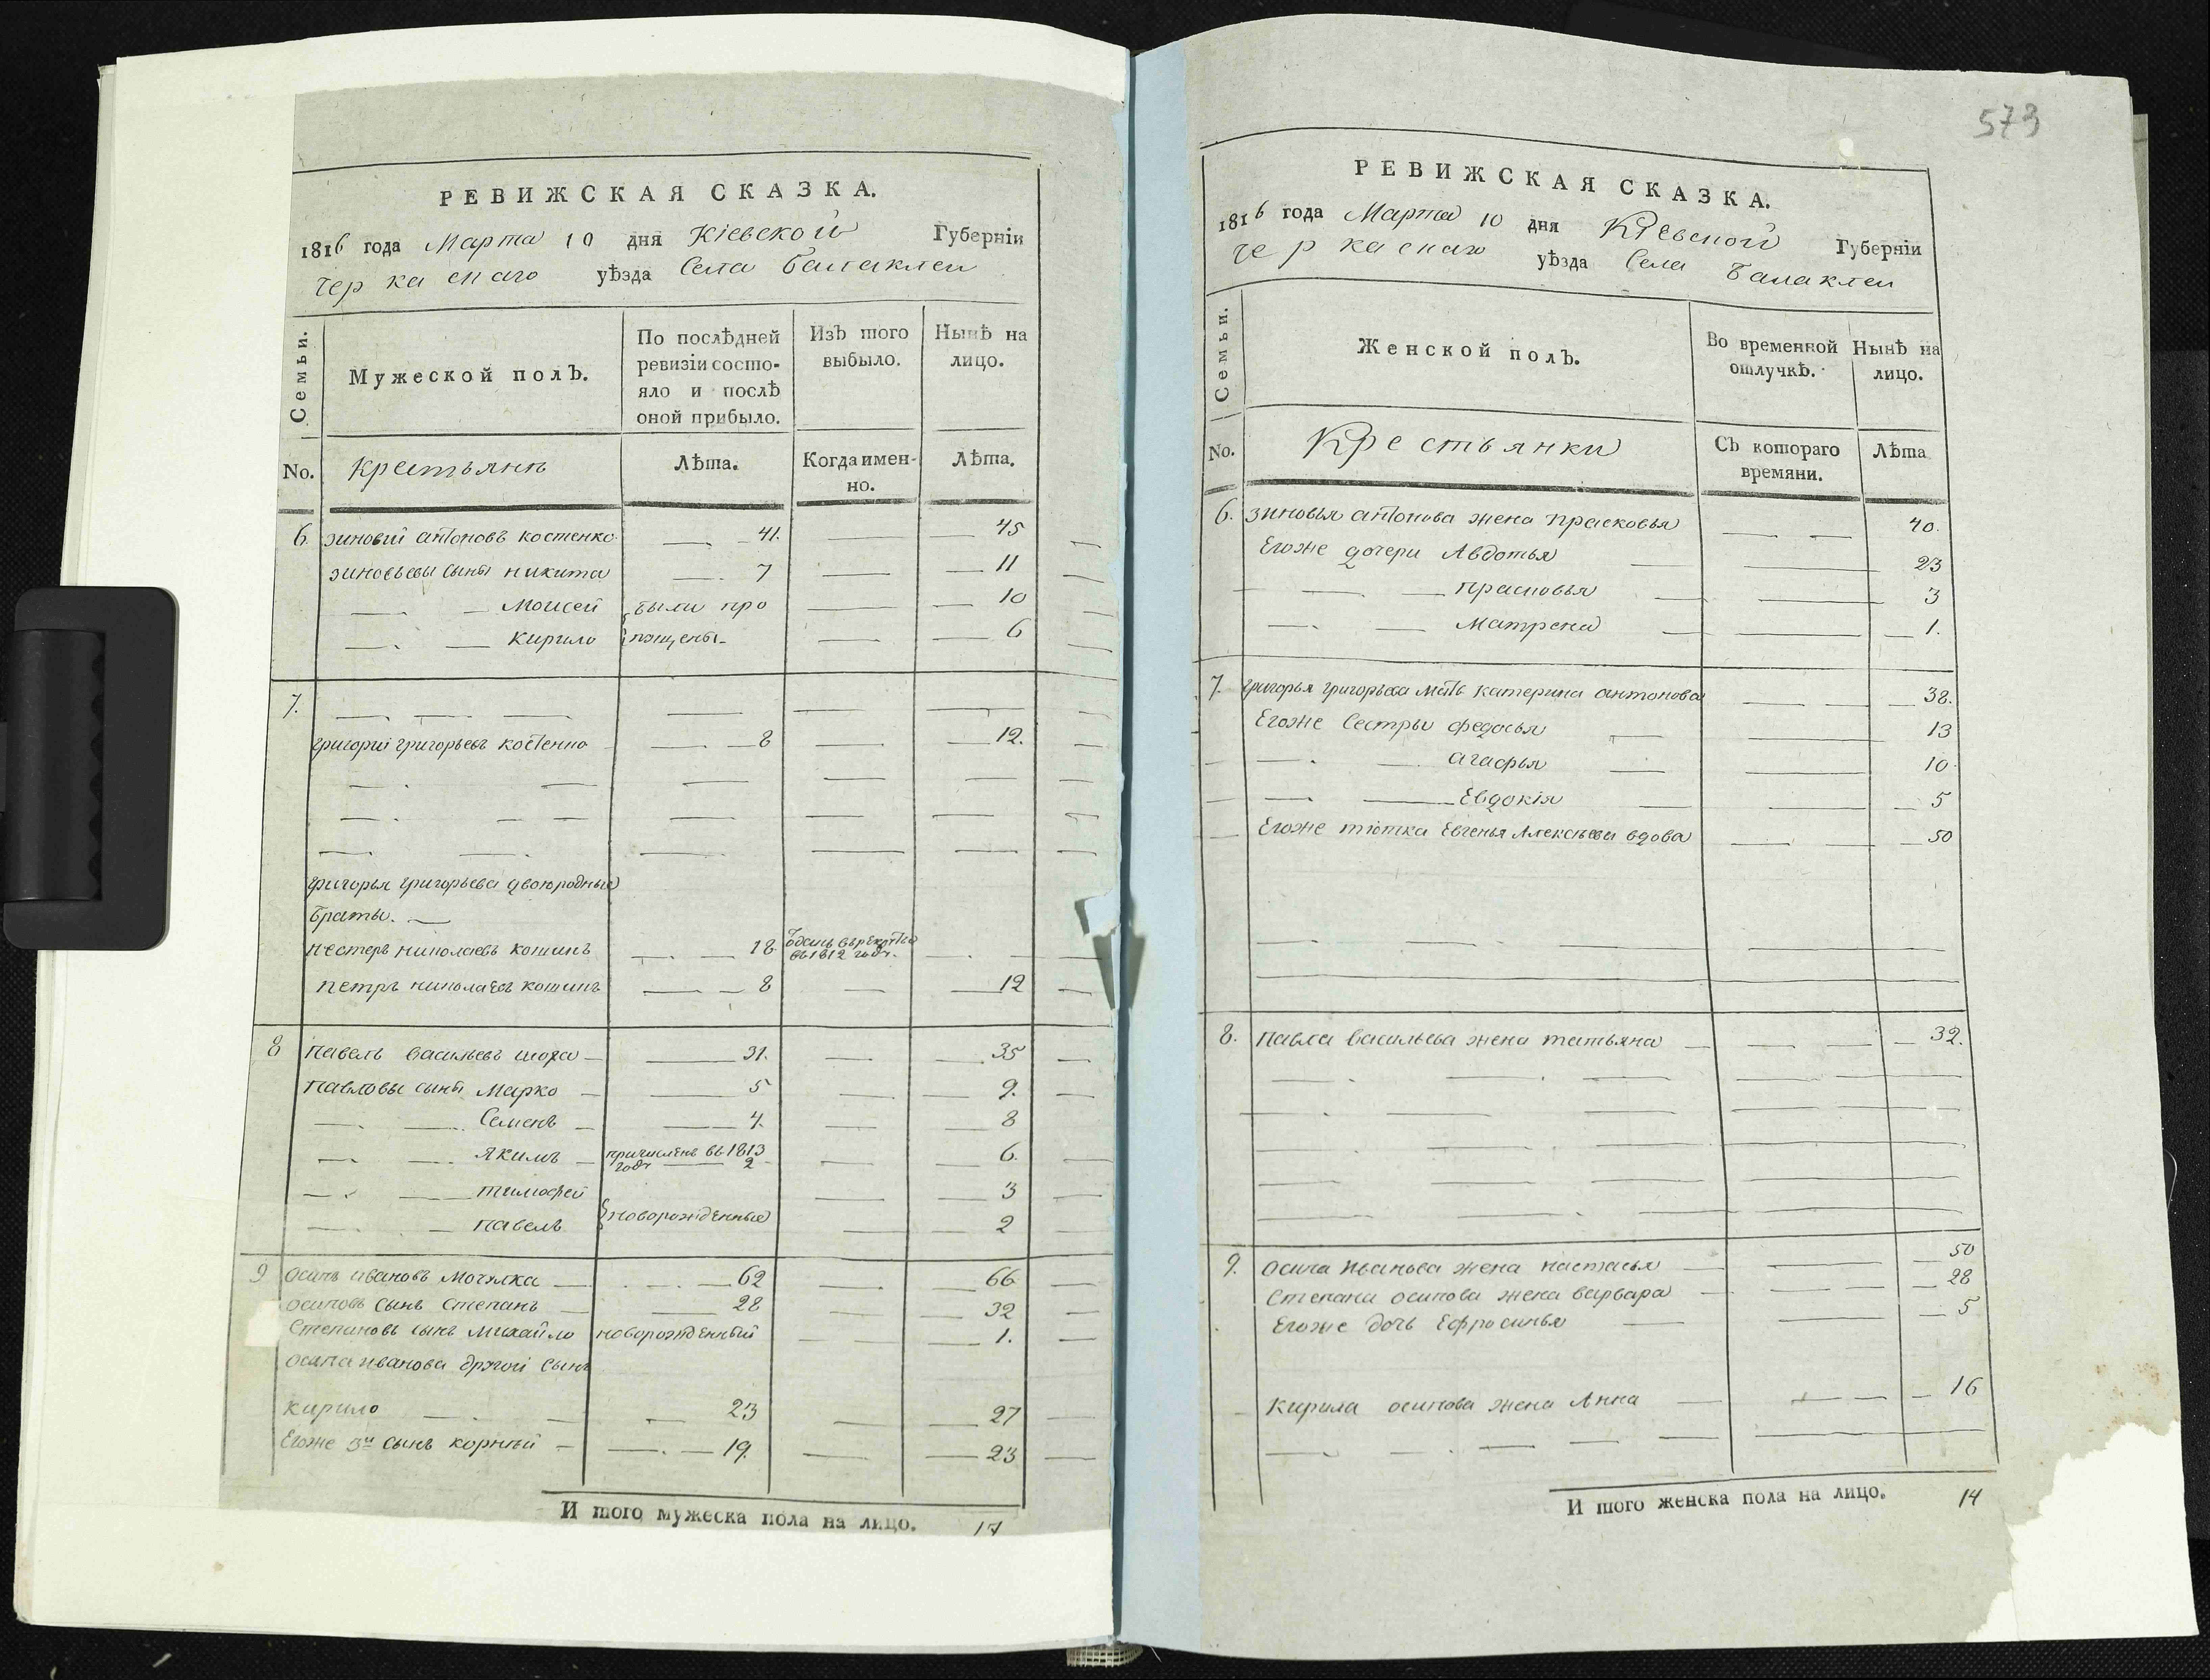 РЕВИЖСКАЯ СКАЗКА.
1816 года Марта 10 дня Кіевской Губерніи
Черкаскаго уѣзда Села Балаклеи
Семьи.
Мужеской полъ.
По послѣдней ревизіи состояло и послѣ оной прибыло.
Изъ того выбыло.
Нынѣ на лицо.
No. Крестьянъ Лѣта. Когда именно. Лѣта.
6. зиновій антоновъ костенко 41. 45
зиновьевы сыны никита 7 11
Моисей были про 10
кирило пущены 6
7.
григорій григорьевъ костенко 8 12.
григорья григорьева двоюродные
браты.
нестеръ николаевъ кошинъ 18 Одань въ рекруты въ 1812 году.
петръ николаевъ кошинъ 8 12
8 павелъ васильевъ шоха 31. 35
павловы сыны Марко 5 9.
Семенъ 4. 8
якимъ причисленъ въ 1813 году 2 6.
тимофей 3
павелъ новорожденные 2
9 осипъ ивановъ Могилка 62 66
осиповъ сынъ Степанъ 28 32
Степановъ сынъ михайло новорожденный 1.
осипа иванова другой сынъ
кирило 23 27
Егоже 3й сынъ корній 19. 23
И того мужеска пола на лицо. 17
573
РЕВИЖСКАЯ СКАЗКА.
1816 года Марта 10 дня Кіевской Губерніи
Черкаскаго уѣзда Села Балаклеи
Семьи.
Женской полъ.
Во временной отлучкѣ.
Нынѣ на лицо.
No. Крестьянки Съ котораго времяни. Лѣта
6. зиновья антонова жена прасковья 40.
Егоже дочери Авдотья 23
прасковья 3
Матрена 1.
7. григорья григорьева мать катерина антонова 38.
Егоже Сестры федосья 13
агафья 10
Евдокія 5
Егоже тіотка Евгенья Алексѣева вдова 50
8. павла васильева жена татьяна 32.
9. осипа иванова жена настасья 50
Степана осипова жена варвара 28
Егоже дочь Ефросинья 5
Кирила осипова жена Анна 16
И того женска пола на лицо. 14